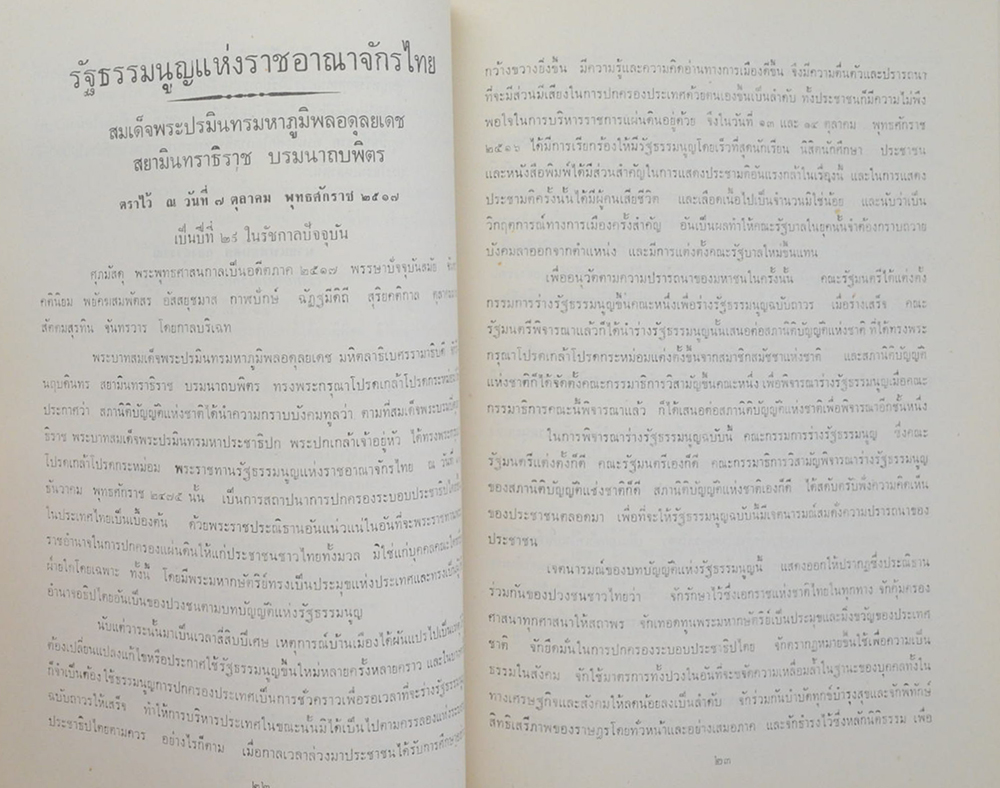 รัฐธรรมนูญแห่งราชอาณาจักรไทย
สมเด็จพระปรมินทรมหาภูมิพลอดุลยเดช
สยามินทราธิราช บรมนาถบพิตร
ตราไว้ ณ วันที่ ๗ ตุลาคม พุทธศักราช ๒๕๑๗
เป็นปีที่ ๒๙ ในรัชกาลปัจจุบัน
ศุภมัสดุ พระพุทธศาสนกาลเป็นอดีตภาค ๒๕๑๗ พรรษาปัจจุบันสมัย
คตินิยม พยัคฆสมพัตสร อัสสยุชมาส กาฬปักษ์ ฉัฏฐมีดิถี สุริยคติกาล
สัตตมสุรทิน จันทรวาร โดยกาลบริเฉท
พระบาทสมเด็จพระปรมินทรมหาภูมิพลอดุลยเดช มหิตลาธิเบศรรามาธิบดี
นฤบดินทร สยามินทราธิราช บรมนาถบพิตร ทรงพระกรุณาโปรดเกล้าโปรดกระหม่อม
ประกาศว่า สภานิติบัญญัติแห่งชาติได้นำความกราบบังคมทูลว่า ตามที่สมเด็จพระบรม
ธิราช พระบาทสมเด็จพระปรมินทรมหาประชาธิปก พระปกเกล้าเจ้าอยู่หัว ได้ทรงพระ
โปรดเกล้าโปรดกระหม่อม พระราชทานรัฐธรรมนูญแห่งราชอาณาจักรไทย ณ วันที่
ธันวาคม พุทธศักราช ๒๔๗๕ นั้น เป็นการสถาปนาการปกครองระบอบประชาธิปไตย
ในประเทศไทยเป็นเบื้องต้น ด้วยพระราชประณิธานอันแน่วแน่ในอันที่จะพระราชทาน
ราชอำนาจในการปกครองแผ่นดินให้แก่ประชาชนชาวไทยทั้งมวล มิใช่แก่บุคคลคณะใด
ฝ่ายใดโดยเฉพาะ ทั้งนี้ โดยมีพระมหากษัตริย์ทรงเป็นประมุขแห่งประเทศและทรงเป็น
อำนาจอธิปไตยอันเป็นของปวงชนตามบทบัญญัติแห่งรัฐธรรมนูญ
นับแต่วาระนั้นมาเป็นเวลาสี่สิบปีเศษ เหตุการณ์บ้านเมืองได้ผันแปรไปเป็น
ต้องเปลี่ยนแปลงแก้ไขหรือประกาศใช้รัฐธรรมนูญขึ้นใหม่หลายครั้งหลายคราว และใน
ก็จำเป็นต้องใช้ธรรมนูญการปกครองประเทศเป็นการชั่วคราวเพื่อรอเวลาที่จะร่างรัฐธรรมนูญ
ฉบับถาวรให้เสร็จ ทำให้การบริหารประเทศในขณะนั้นมิได้เป็นไปตามครรลองแห่ง
ประชาธิปไตยตามควร อย่างไรก็ตาม เมื่อกาลเวลาล่วงมาประชาชนได้รับการศึกษา
๒๒
กว้างขวางยิ่งขึ้น มีความรู้และความคิดอ่านทางการเมืองดีขึ้น จึงมีความตื่นตัวและปรารถนา
ที่จะมีส่วนมีเสียงในการปกครองประเทศด้วยตนเองขึ้นเป็นลำดับ ทั้งประชาชนก็มีความไม่พึง
พอใจในการบริหารราชการแผ่นดินอยู่ด้วย จึงในวันที่ ๑๓ และ ๑๔ ตุลาคม พุทธศักราช
๒๕๑๖ ได้มีการเรียกร้องให้มีรัฐธรรมนูญโดยเร็วที่สุดนักเรียน นิสิตนักศึกษา ประชาชน
และหนังสือพิมพ์ได้มีส่วนสำคัญในการแสดงประชามติอันแรงกล้าในเรื่องนี้ และในการแสดง
ประชามติครั้งนั้นได้มีผู้คนเสียชีวิต และเลือดเนื้อไปเป็นจำนวนมิใช่น้อย และนับว่าเป็น
วิกฤตการณ์ทางการเมืองครั้งสำคัญ อันเป็นผลทำให้คณะรัฐบาลในยุคนั้นจำต้องกราบถวาย
บังคมลาออกจากตำแหน่ง และมีการแต่งตั้งคณะรัฐบาลใหม่ขึ้นแทน
เพื่ออนุวัตตามความปรารถนาของมหาชนในครั้งนั้น คณะรัฐมนตรีได้แต่งตั้ง
กรรมการร่างรัฐธรรมนูญขึ้นคณะหนึ่งเพื่อร่างรัฐธรรมนูญฉบับถาวร เมื่อร่างเสร็จ คณะ
รัฐมนตรีพิจารณาแล้วก็ได้นำร่างรัฐธรรมนูญนั้นเสนอต่อสภานิติบัญญัติแห่งชาติ ที่ได้ทรงพระ
กรุณาโปรดเกล้าโปรดกระหม่อมแต่งตั้งขึ้นจากสมาชิกสมัชชาแห่งชาติ และสภานิติบัญญัติ
แห่งชาติก็ได้จัดตั้งคณะกรรมาธิการวิสามัญขึ้นคณะหนึ่ง เพื่อพิจารณาร่างรัฐธรรมนูญเมื่อคณะ
กรรมาธิการคณะนั้นพิจารณาแล้ว ก็ได้เสนอต่อสภานิติบัญญัติแห่งชาติเพื่อพิจารณาอีกชั้นหนึ่ง
ในการพิจารณาร่างรัฐธรรมนูญฉบับนี้ คณะกรรมการร่างรัฐธรรมนูญ ซึ่งคณะ
รัฐมนตรีแต่งตั้งก็ดี คณะรัฐมนตรีเองก็ดี คณะกรรมาธิการวิสามัญพิจารณาร่างรัฐธรรมนูญ
ของสภานิติบัญญัติแห่งชาติก็ดี สภานิติบัญญัติแห่งชาติเองก็ดี ได้สดับตรับฟังความคิดเห็น
ของประชาชนตลอดมา เพื่อที่จะให้รัฐธรรมนูญฉบับนี้มีเจตนารมณ์สมดังความปรารถนาของ
ประชาชน
เจตนารมณ์ของบทบัญญัติแห่งรัฐธรรมนูญนี้ แสดงออกให้ปรากฏซึ่งประณิธาน
ร่วมกันของปวงชนชาวไทยว่า จักรักษาไว้ซึ่งเอกราชแห่งชาติไทยในทุกทาง จักคุ้มครอง
ศาสนาทุกศาสนาให้สถาพร จักเทอดทูนพระมหากษัตริย์เป็นประมุขและมิ่งขวัญของประเทศ
ชาติ จักยึดมั่นในการปกครองระบอบประชาธิปไตย จักตรากฎหมายขึ้นใช้เพื่อความเป็น
ธรรมในสังคม จักใช้มาตรการทั้งปวงในอันที่จะขจัดความเหลื่อมล้ำในฐานะของบุคคลทั้งใน
ทางเศรษฐกิจและสังคมให้ลดน้อยลงเป็นลำดับ จักร่วมกันบำบัดทุกข์บำรุงสุขและจักพิทักษ์
สิทธิเสรีภาพของราษฎรโดยทั่วหน้าและอย่างเสมอภาค และจักธำรงไว้ซึ่งหลักนิติธรรม เพื่อ
๒๓